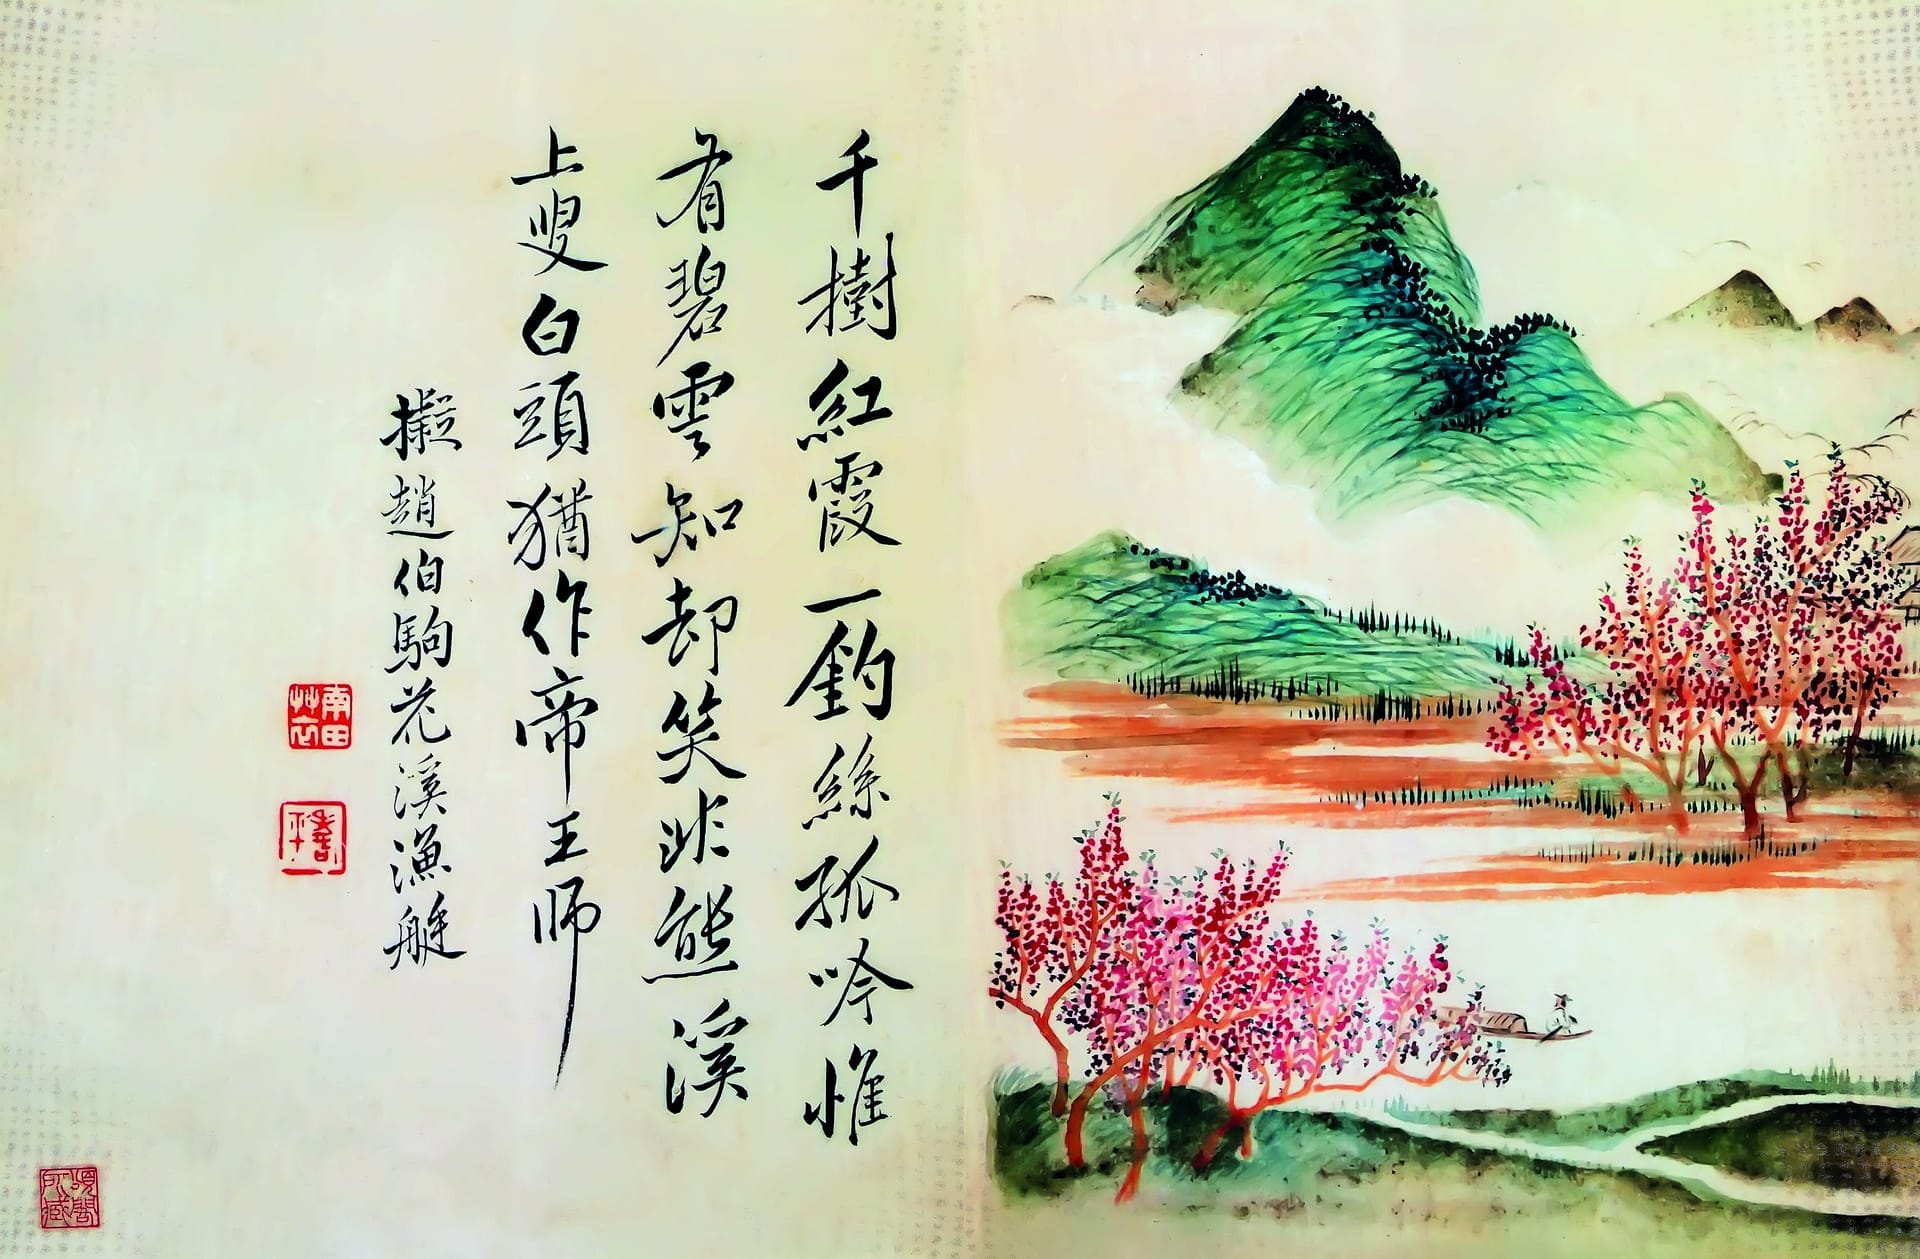 千樹紅霞一釣絲孤吟惟
有碧雲知却笑非熊溪
上叟白頭猶作帝王師
擬趙伯駒花溪漁艇
南田艸衣
壽平